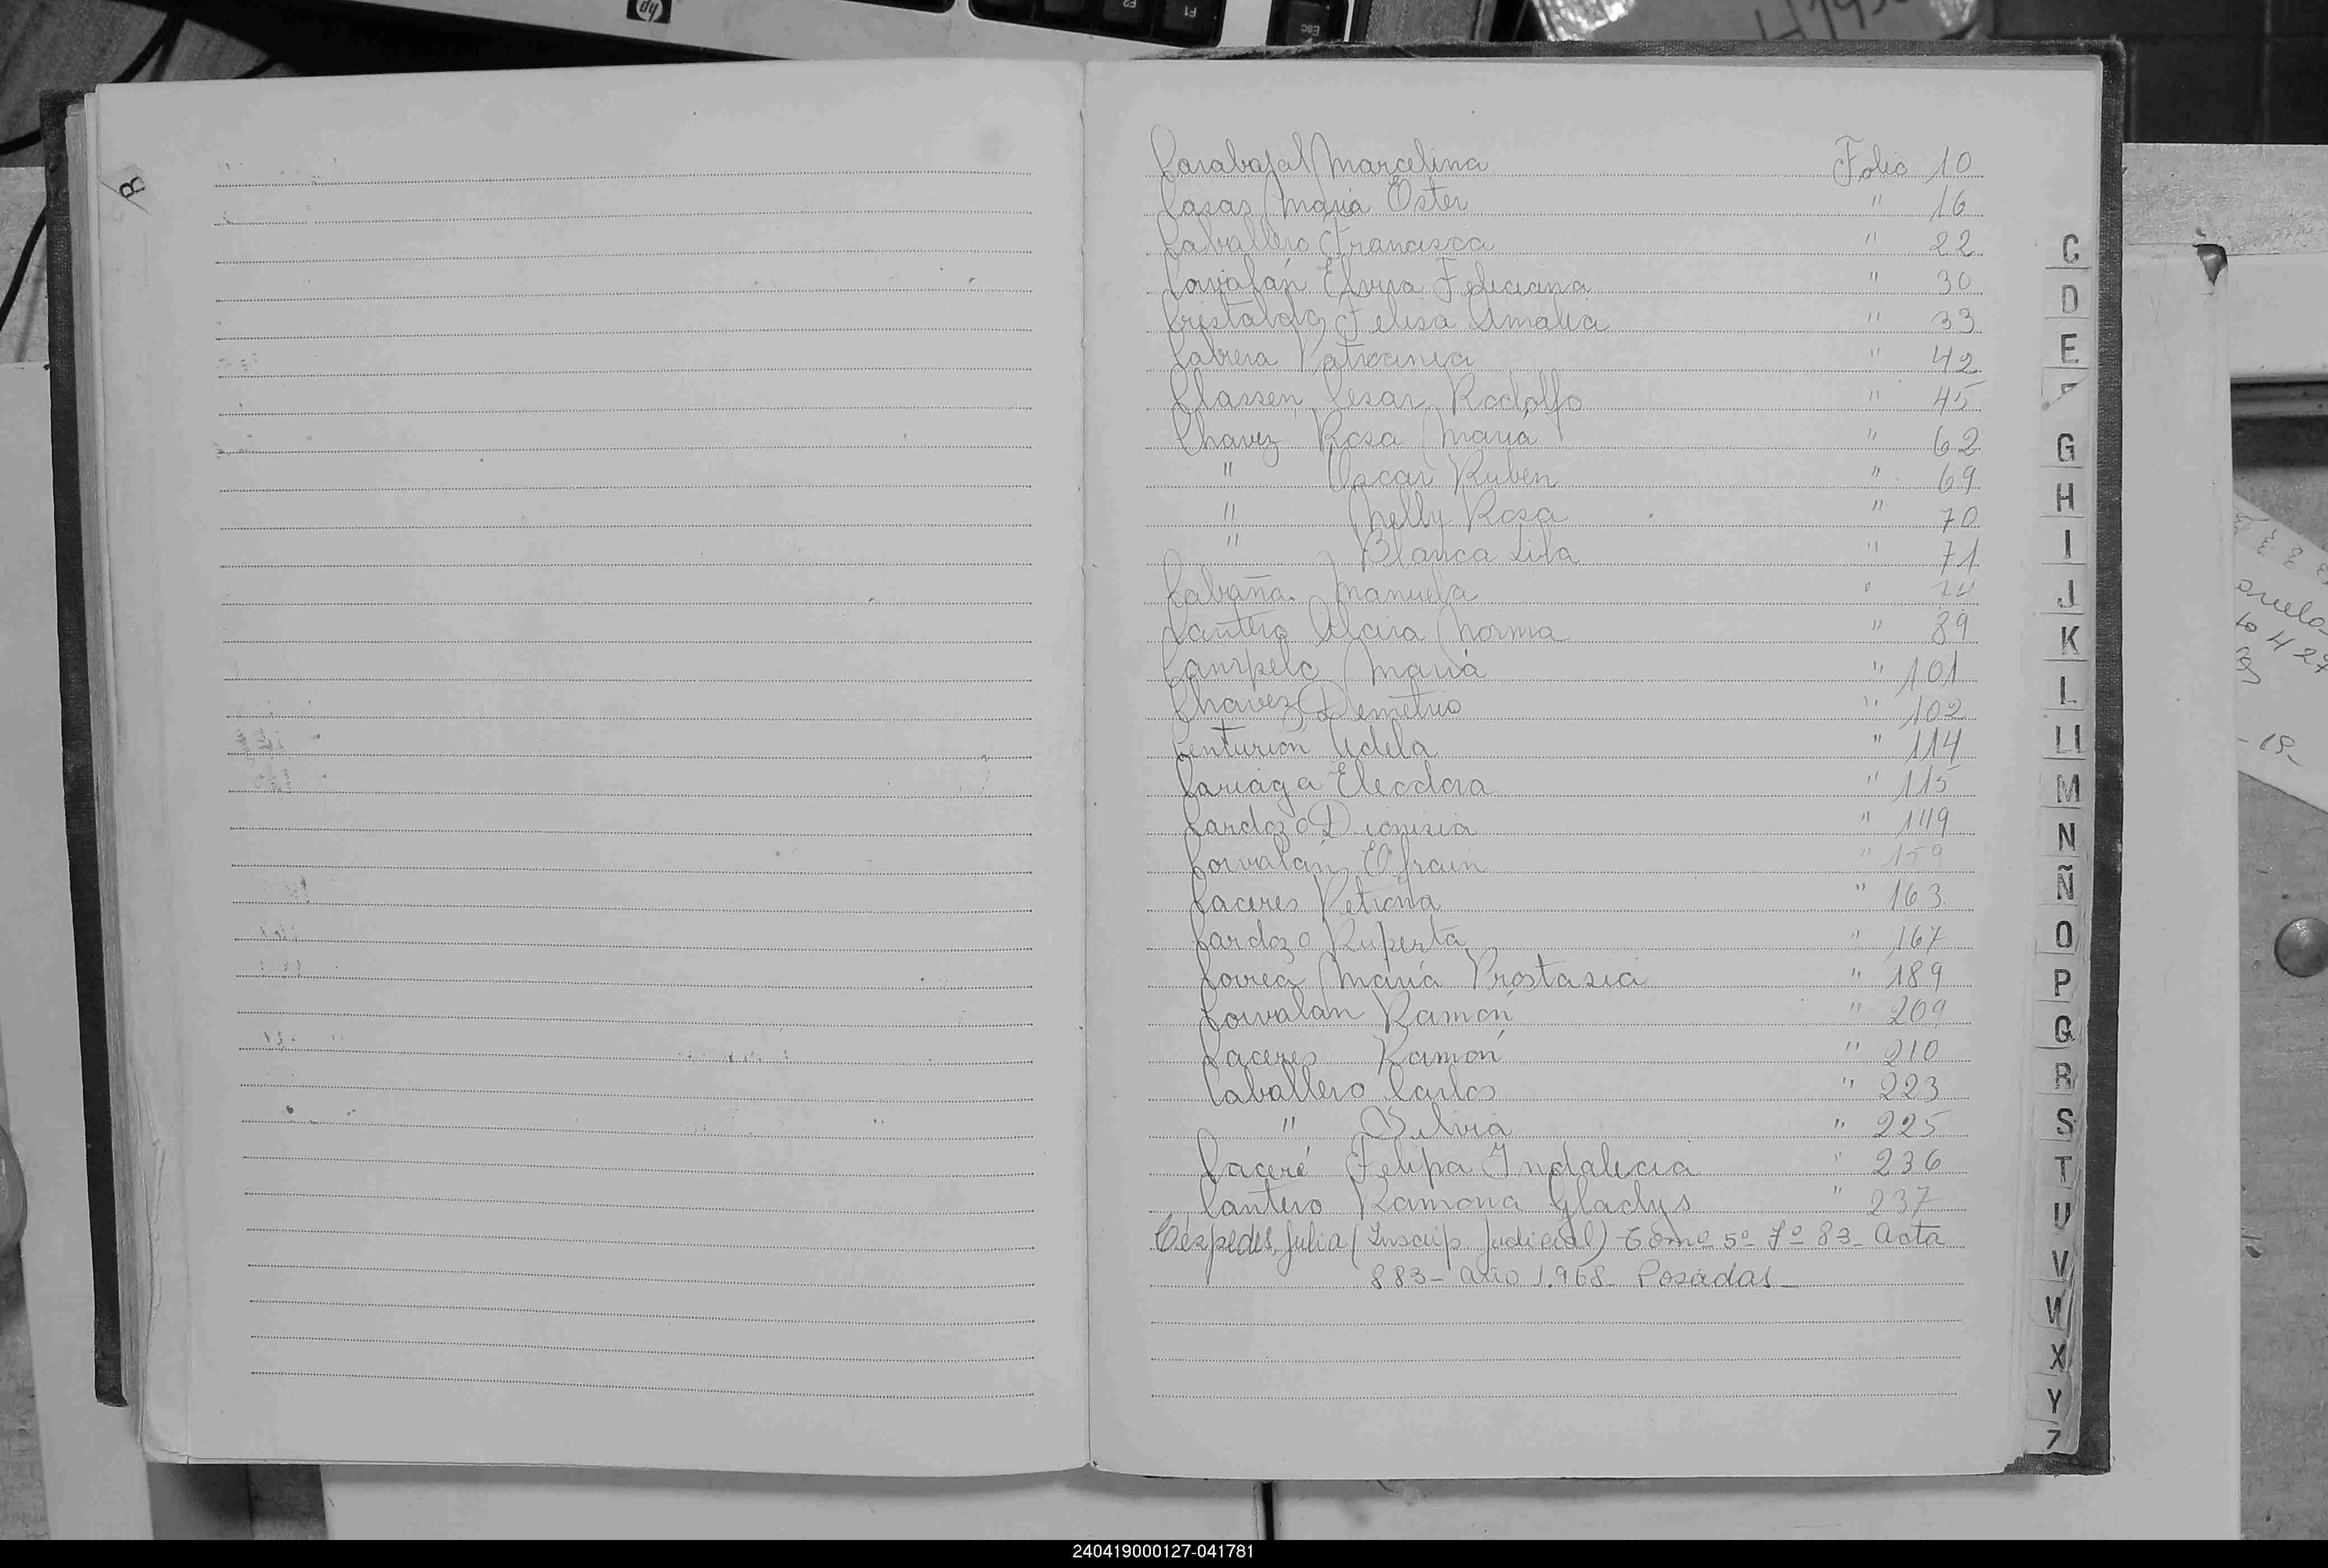 R
Carabajal Marcelina Folio 10
Casas Maria Ester " 16
Caballero Francisca " 22
Corvalán Elvira Feliciana " 30
Cristaldo Felisa Amalia " 33
Cabrera Patrocinia " 42
Classen Cesar Rodolfo " 45
Chavez Rosa Maria " 62
" Oscar Ruben " 69
" Nelly Rosa " 70
" Blanca Lila " 71
Cabaña Manuela "
Cantero Alcira Norma " 89
Campelo Maria " 101
Chavez Demetrio " 102
Centurion Adela " 114
Cariaga Eleodora " 115
Cardozo Dionisia " 149
Corvalán Efrain " 159
Caceres Petrona " 163
Cardozo Ruperta " 167
Correa Maria Prostasia " 189
Corvalan Ramón " 209
Caceres Ramón " 210
Caballero Carlos " 223
" Silvia " 225
Caceré Felipa Indalecia " 236
Cantero Ramona Gladys " 237
Céspedes, Julia (Inscrip. Judicial) - Tomo 5º Fº 83 - Acta
883 - año 1.968 - Posadas -
C
D
E
F
G
H
I
J
K
L
Ll
M
N
Ñ
O
P
Q
R
S
T
U
V
W
X
Y
Z
240419000127-041781